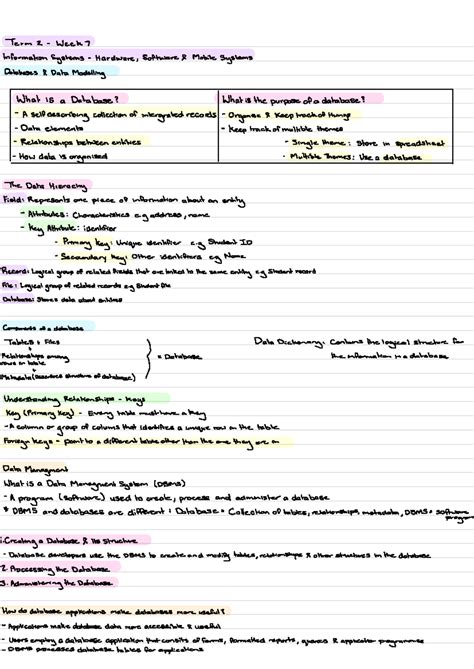 Term 2 - Week 7
Information Systems - Hardware, Software & Mobile Systems
Databases & Data Modelling
What is a Database?
- A self describing collection of intergrated records
- Data elements
- Relationships between entities
- How data is organised
What is the purpose of a database?
- Organise & Keep track of things
- Keep track of multible themes
- Single theme: Store in spreadsheet
- Multiple Themes: Use a database
The Data Hierachy
Field: Represents one piece of information about an entity
- Attributes: Characteristics e.g address, name
- Key Attribute: identifier
- Primary Key: Unique identifier e.g Student ID
- Secoundary Key: Other identifiers eg Name
Record: Logical group of related fields that are linked to the same entity e.g Student record
File: Logical group of related records e.g Student file
Database: Stores data about entities
Components of a database
Tables & Files
+
Relationships among
rows in table
+
Metadata (describes structure of database)
= Database
Data Dictionary: Contains the logical structure for
the information in a database
Understanding Relationships - Keys
Key (Primary Key) - Every table must have a key
- A column or group of columns that identifies a unique row in the table
Foreign Keys - point to a different table other than the one they are in
Data Managment
What is a Data Managment System (DBMS)
- A program (software) used to create, process and administer a database
* DBMS and databases are different: Database = Collection of tables, relationships, metadata, DBMS = software
program
1. Creating a Database & Its Structure
- Database developers use the DBMS to create and modify tables, relationships & other structures in the database
2. Processing the Database
3. Administering the Database
How do database applications make databases more useful?
- Applications make database data more accessible & useful
- Users employ a database application that consits of forms, formatted reports, queries & application programmes
- DBMS processes database tables for applications